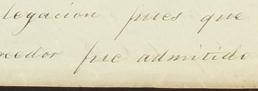 legacion pues que
nedor fue admitido